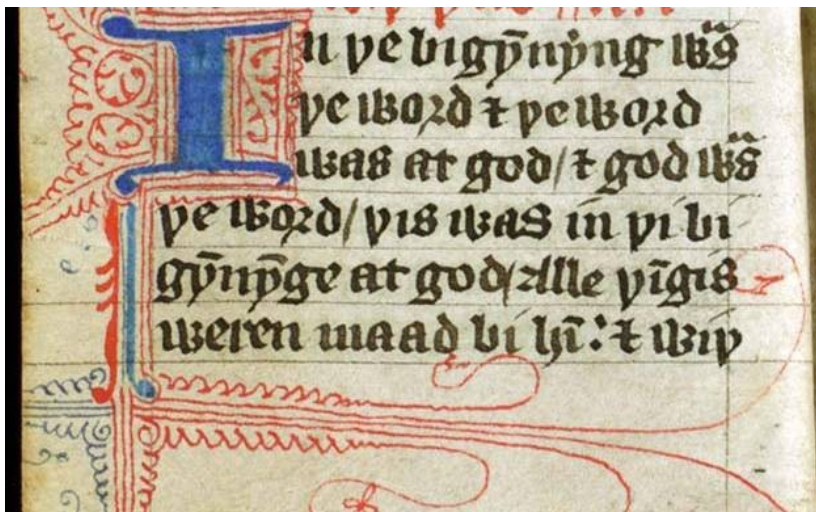 In þe bigȳnyng wͣs
þe word ⁊ þe word
was at god/ ⁊ god wͣs
þe word/ þis was in þi bi
gȳnȳge at god/ Alle þīgis
weren maad bi hī: ⁊ wiþ